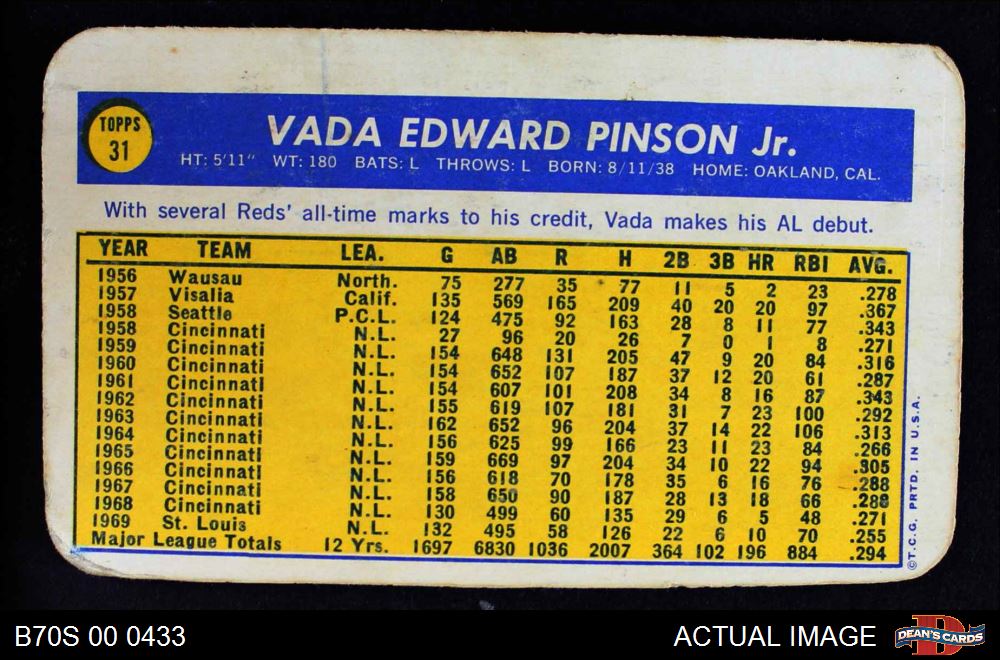 TOPPS
31
VADA EDWARD PINSON Jr.
HT: 5'11" WT: 180 BATS: L THROWS: L BORN: 8/11/38 HOME: OAKLAND, CAL.
With several Reds' all-time marks to his credit, Vada makes his AL debut.
YEAR TEAM LEA. G AB R H 2B 3B HR RBI AVG.
1956 Wausau North. 75 277 35 77 11 5 2 23 .278
1957 Visalia Calif. 135 569 165 209 40 20 20 97 .367
1958 Seattle P.C.L. 124 475 92 163 28 8 11 77 .343
1958 Cincinnati N.L. 27 96 20 26 7 0 1 8 .271
1959 Cincinnati N.L. 154 648 131 205 47 9 20 84 .316
1960 Cincinnati N.L. 154 652 107 187 37 12 20 61 .287
1961 Cincinnati N.L. 154 607 101 208 34 8 16 87 .343
1962 Cincinnati N.L. 155 619 107 181 31 7 23 100 .292
1963 Cincinnati N.L. 162 652 96 204 37 14 22 106 .313
1964 Cincinnati N.L. 156 625 99 166 23 11 23 84 .266
1965 Cincinnati N.L. 159 669 97 204 34 10 22 94 .305
1966 Cincinnati N.L. 156 618 70 178 35 6 16 76 .288
1967 Cincinnati N.L. 158 650 90 187 28 13 18 66 .288
1968 Cincinnati N.L. 130 499 60 135 29 6 5 48 .271
1969 St. Louis N.L. 132 495 58 126 22 6 10 70 .255
Major League Totals 12 Yrs. 1697 6830 1036 2007 364 102 196 884 .294
©T.C.G. PRTD. IN U.S.A.
B70S 00 0433
ACTUAL IMAGE
DEAN'S CARDS